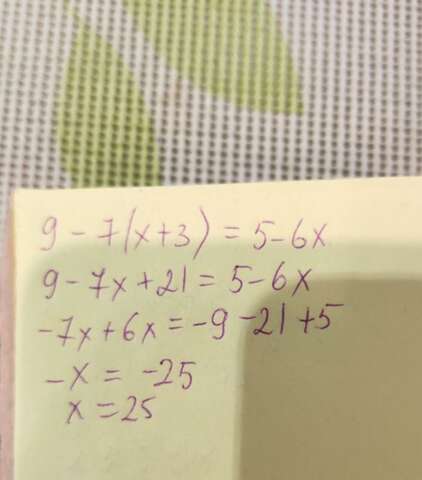 9 - 7(x+3) = 5-6x
9 - 7x + 21 = 5 - 6x
-7x + 6x = -9 - 21 + 5
-x = -25
x = 25